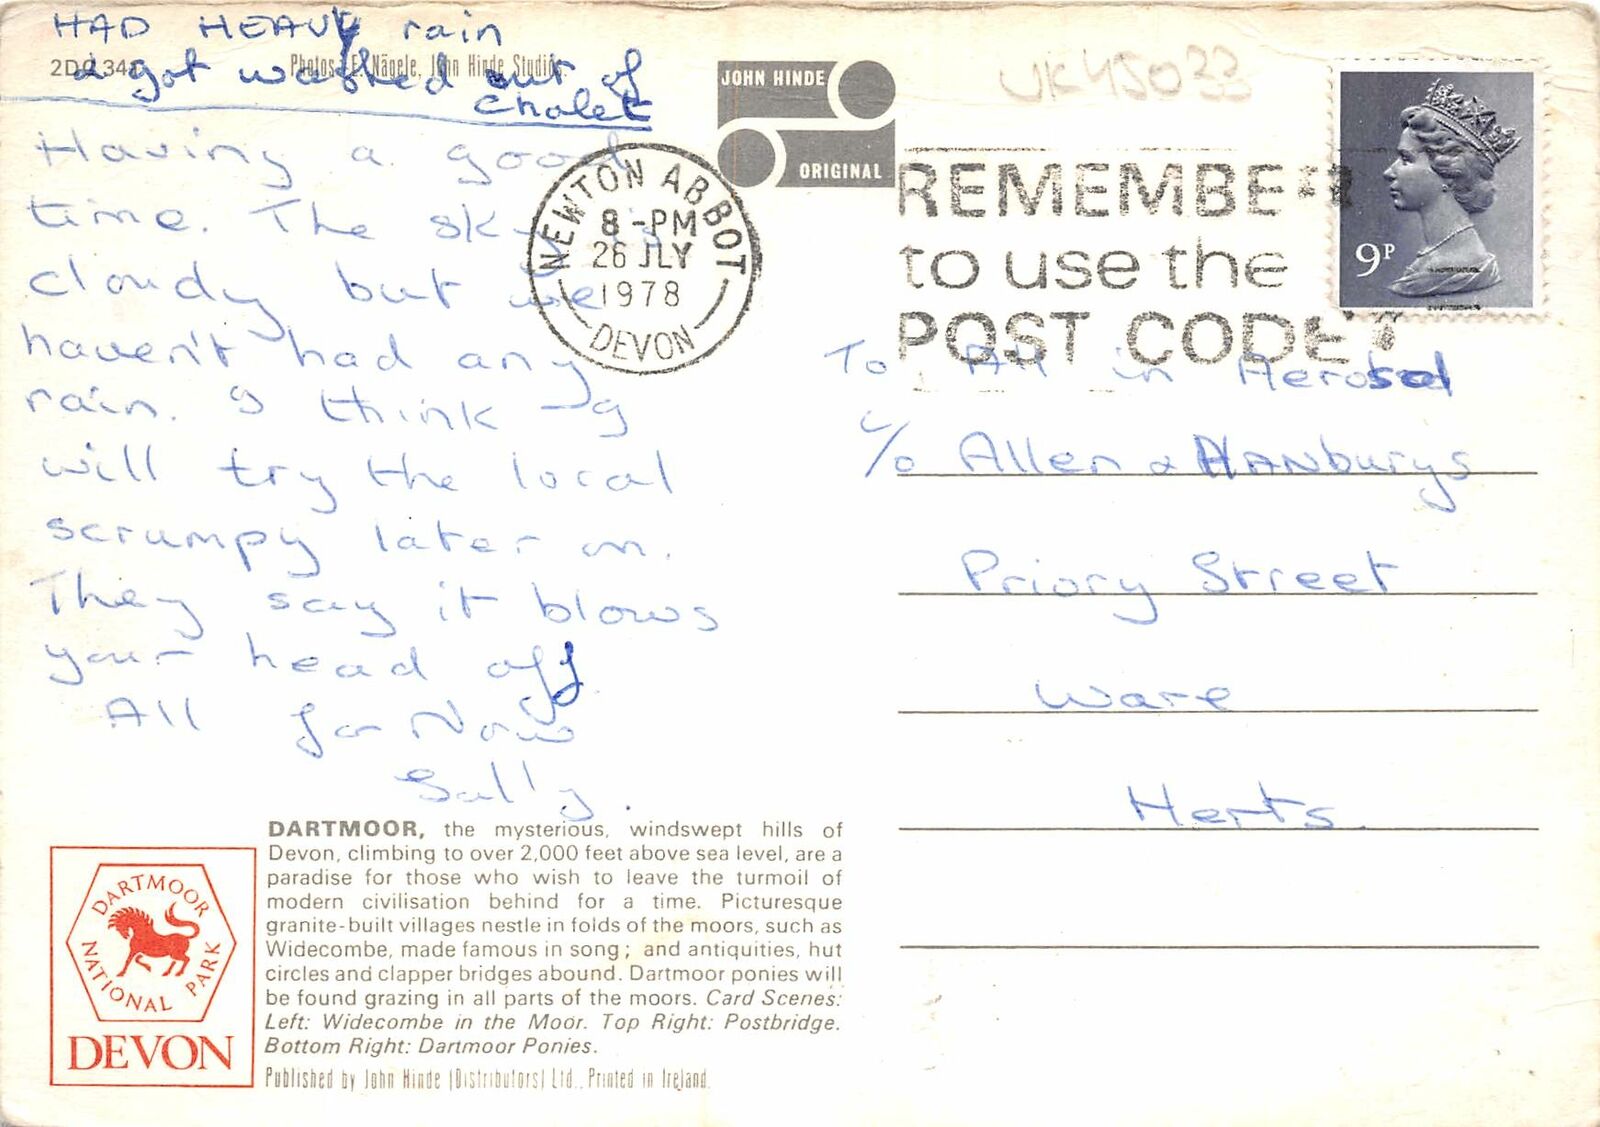 HAD HEAVY rain
& got washed out of
chalet
2DC 342
Photos: E. Nägele, John Hinde Studios.
Having a good
time. The sky is
cloudy but we
haven't had any
rain. I think I
will try the local
scrumpy later on.
They say it blows
your head off
All for Now
Sally.
JOHN HINDE
ORIGINAL
UK45033
NEWTON ABBOT
8-PM
26 JLY
1978
DEVON
REMEMBER
to use the
POST CODE
9P
To All in Aerosol
c/o Allen & HANburys
Priory Street
Ware
Herts.
DARTMOOR, the mysterious, windswept hills of
Devon, climbing to over 2,000 feet above sea level, are a
paradise for those who wish to leave the turmoil of
modern civilisation behind for a time. Picturesque
granite-built villages nestle in folds of the moors, such as
Widecombe, made famous in song; and antiquities, hut
circles and clapper bridges abound. Dartmoor ponies will
be found grazing in all parts of the moors. Card Scenes:
Left: Widecombe in the Moor. Top Right: Postbridge.
Bottom Right: Dartmoor Ponies.
Published by John Hinde (Distributors) Ltd., Printed in Ireland.
DARTMOOR
NATIONAL PARK
DEVON